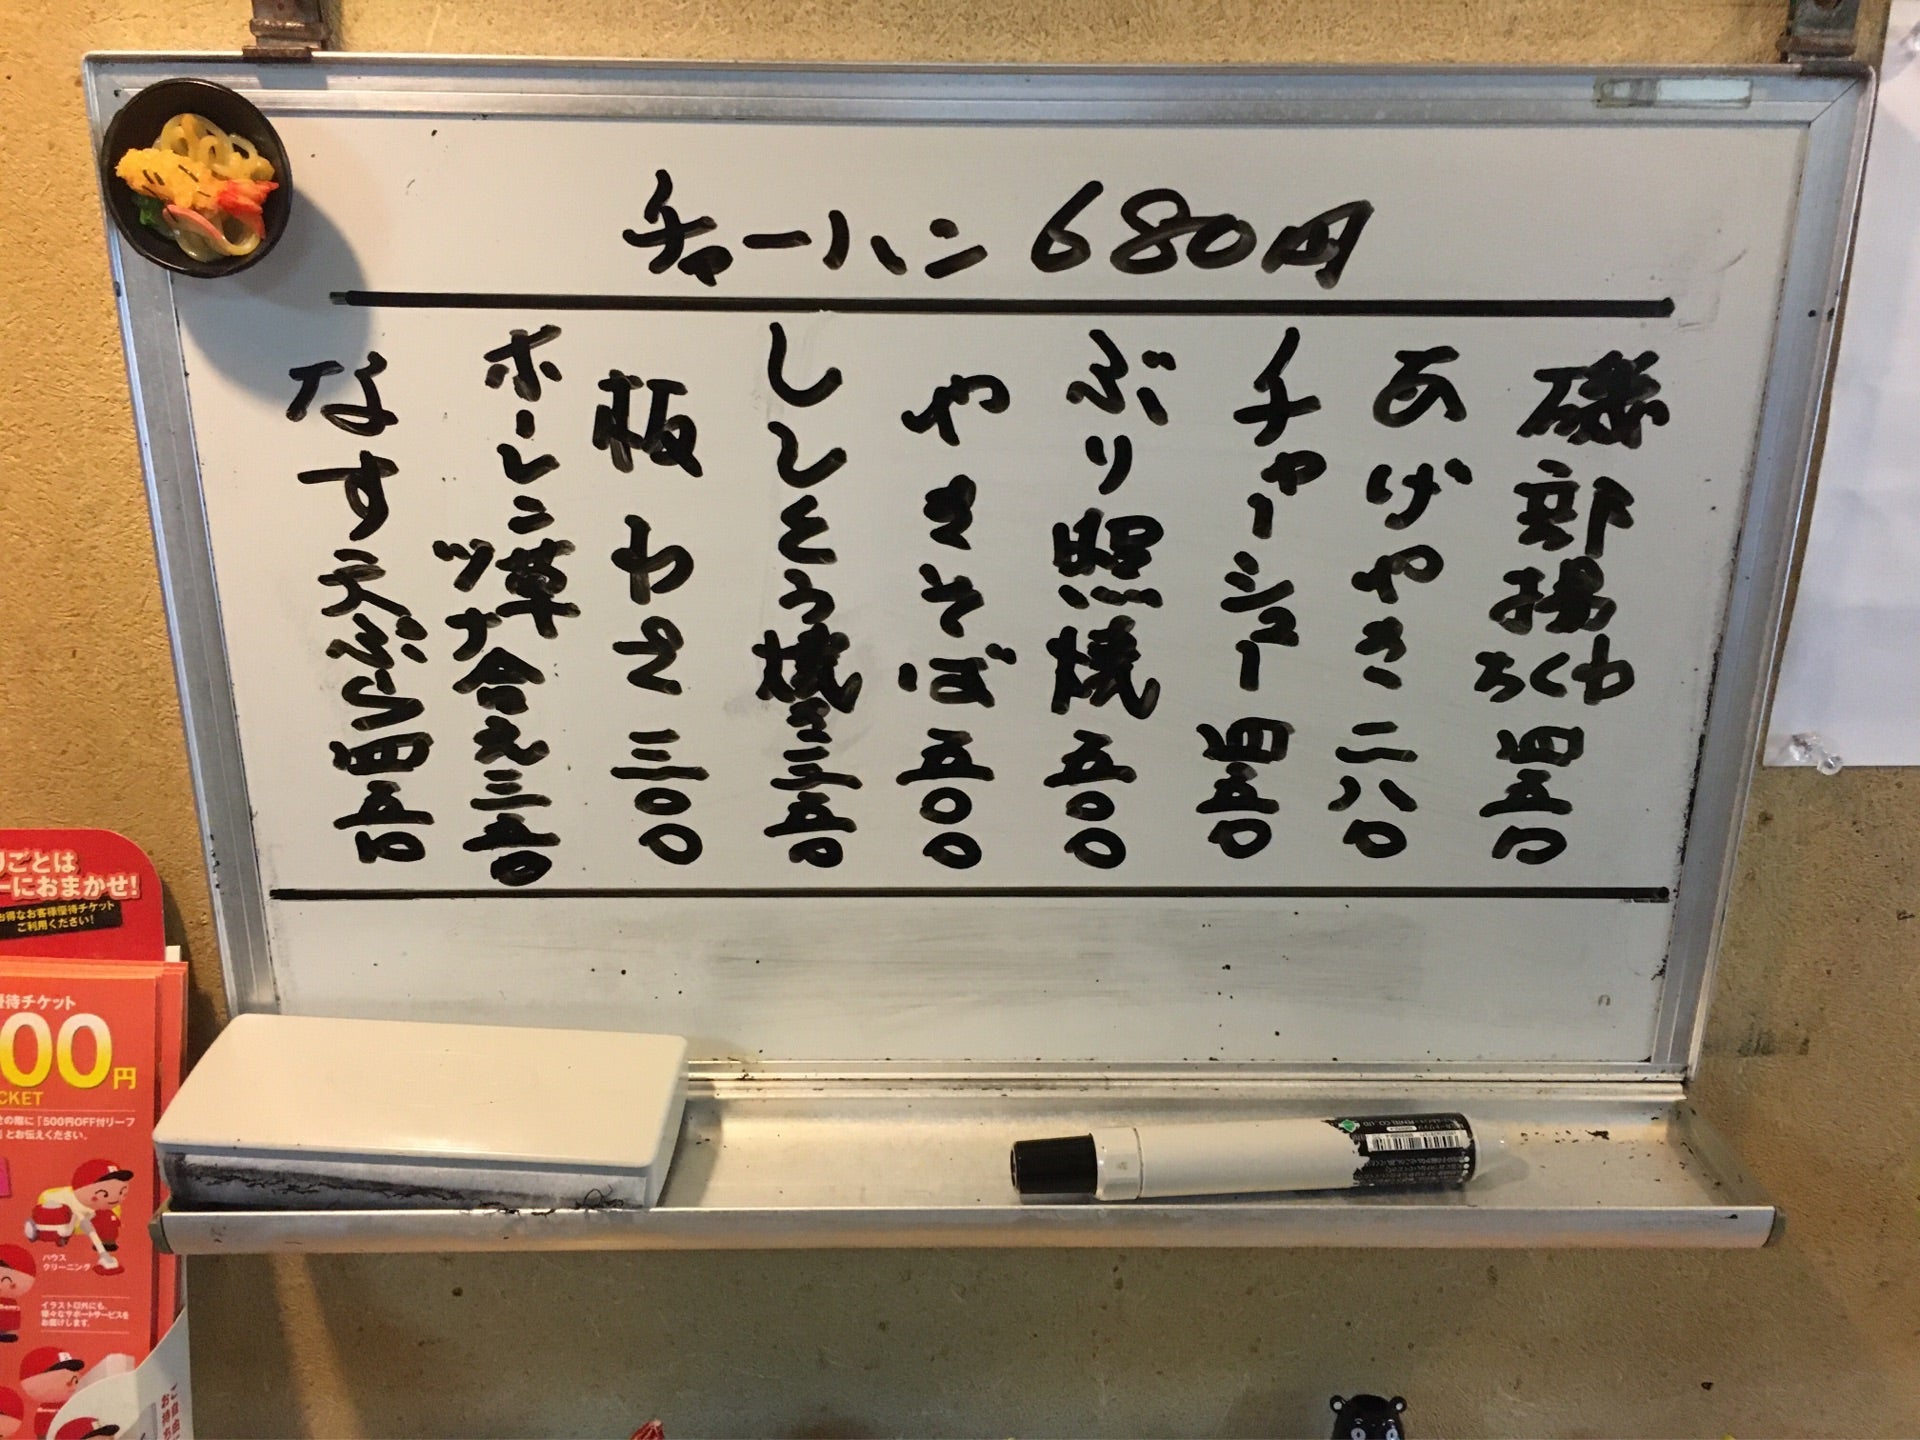 チャーハン 680円
磯部揚 ちくわ 四五〇
あげやき 二八〇
チャーシュー 四五〇
ぶり照焼 五〇〇
やきそば 五〇〇
ししとう焼き 三五〇
板わさ 三〇〇
ホーレン草ツナ合え 三五〇
なす天ぷら 四五〇
りごとは
ーにおまかせ!
お得なお客様優待チケット
ご利用ください!
優待チケット
00円
CKET
の際に「500円OFF付リーフ
とお伝えください。
ハウス
クリーニング
イラスト以外にも、
様々なサポートサービスを
お届けします。